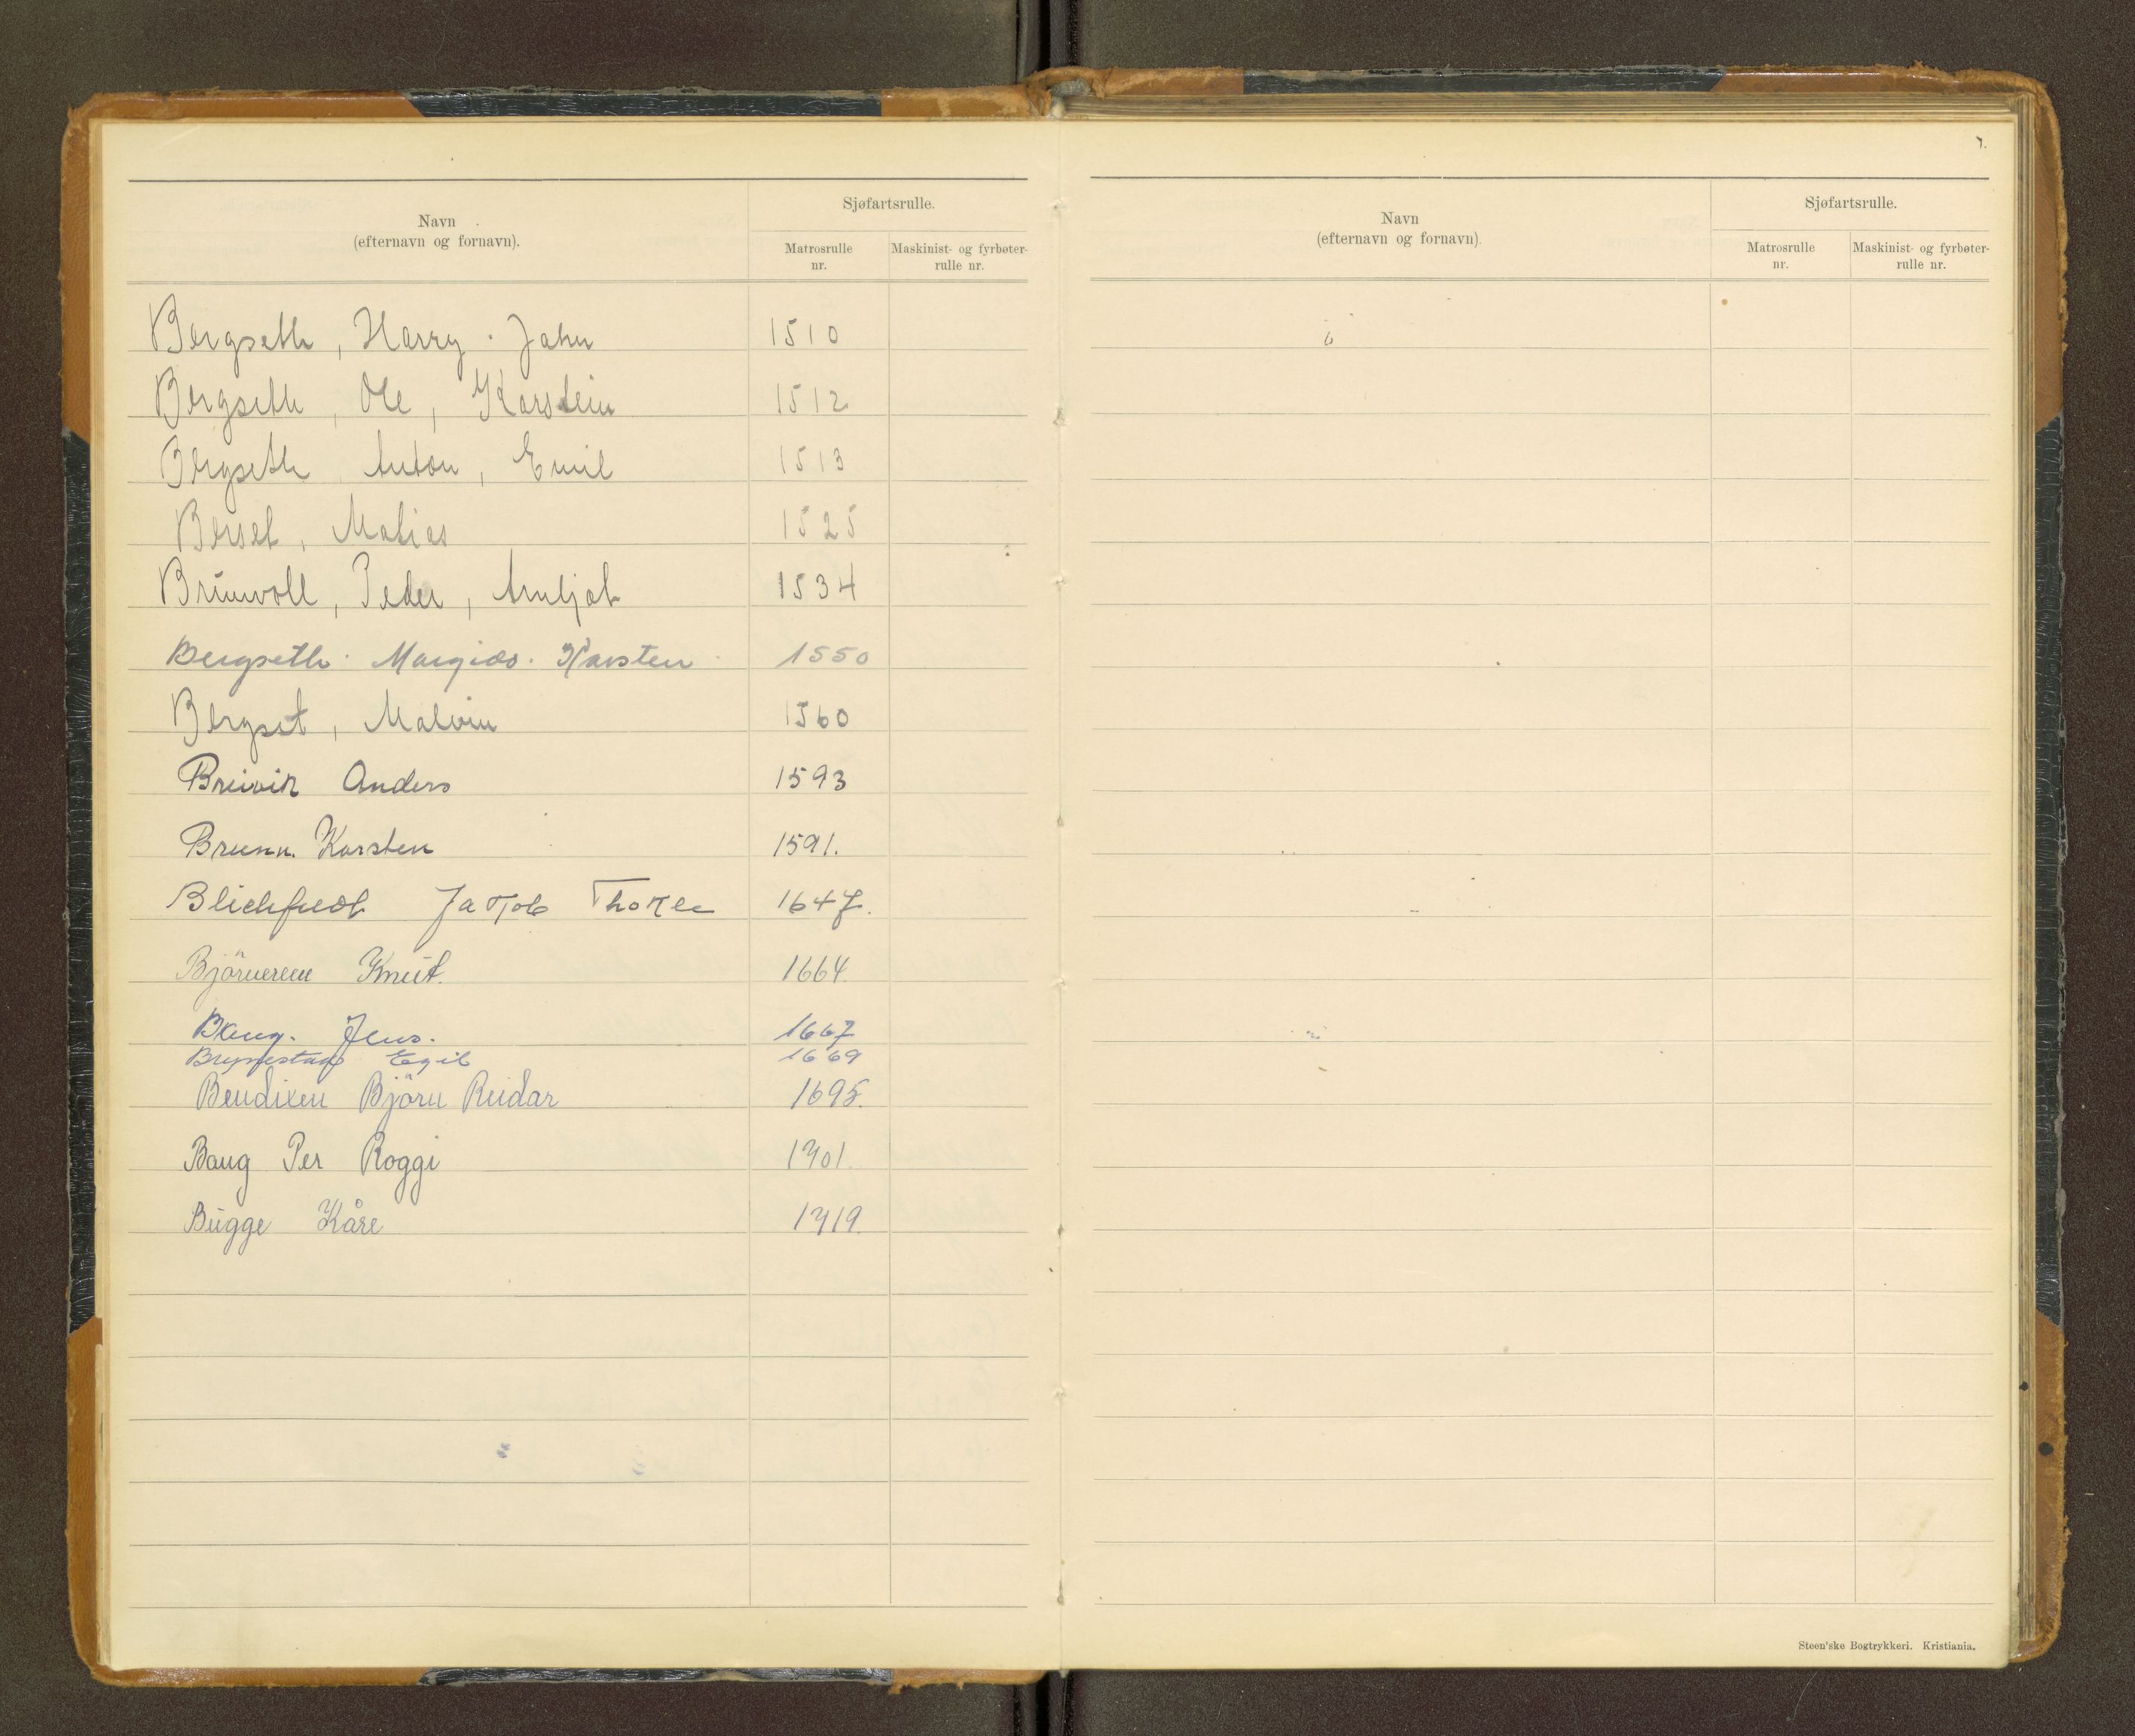 Navn
(efternavn og fornavn).
Sjøfartsrulle.
Matrosrulle nr.
Maskinist- og fyrbøter-rulle nr.
Bergseth, Harry John 1510
Bergseth, Ole, Karstein 1512
Bergseth, Anton, Emil 1513
Berset, Matias 1525
Brunvoll, Peder, Arnljot 1534
Bergseth Margido Karsten 1550
Bergset, Malvin 1560
Breivik Anders 1593
Brunn. Karsten 1591.
Blichfeldt Jakob Thorle 1647.
Björnerem Knut. 1664.
Bang. Jens. 1667
Bryngestad Egil 1669
Bendixen Björn Reidar 1695.
Baug Per Roggi 1701.
Bugge Kåre 1719.
7.
Navn
(efternavn og fornavn).
Sjøfartsrulle.
Matrosrulle nr.
Maskinist- og fyrbøter-rulle nr.
Steen'ske Bogtrykkeri. Kristiania.